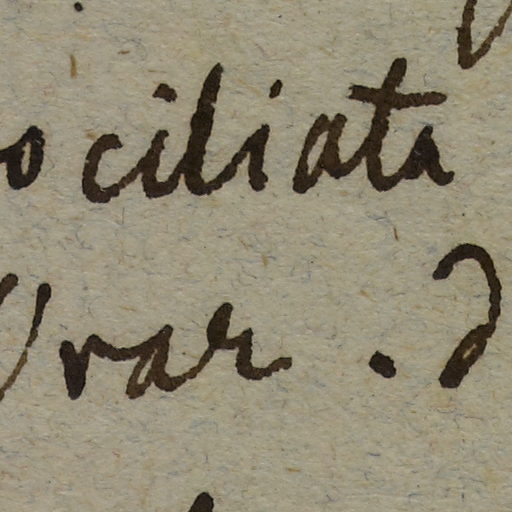 ociliata
var. d